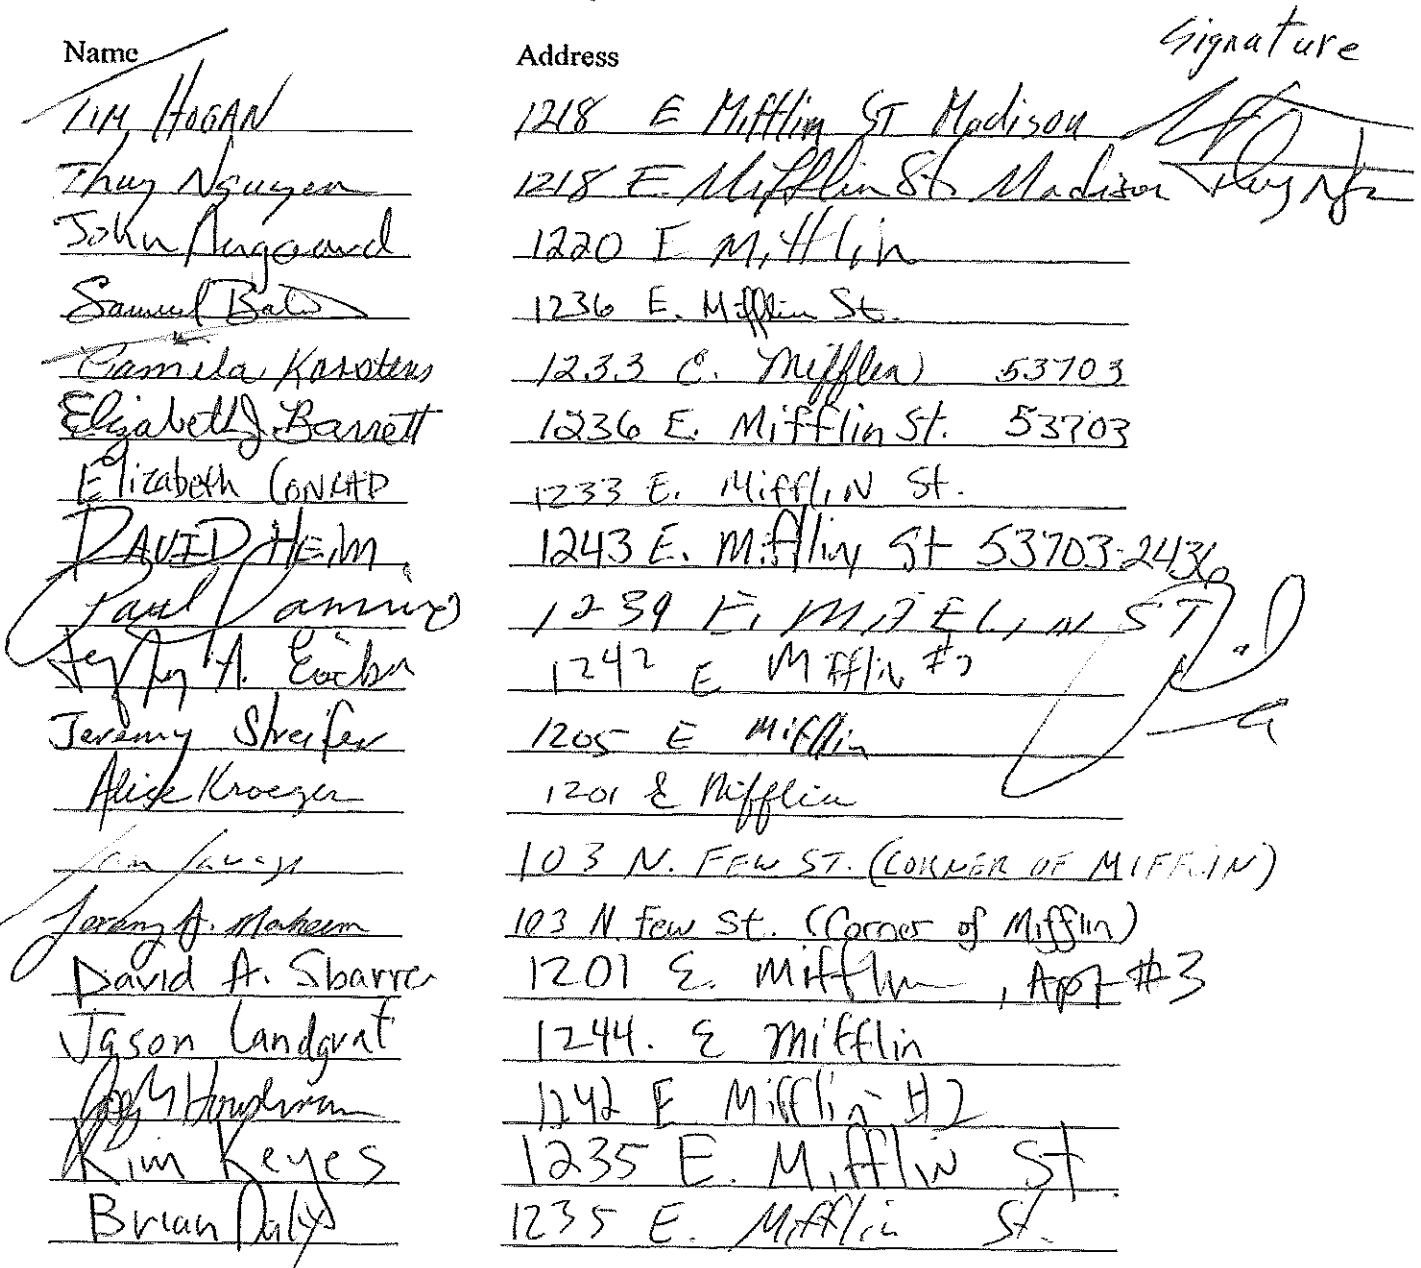 Signature
Name Address
TIM HOGAN 1218 E Mifflin ST Madison
Thuy Nguyen 1218 E. Mifflin St. Madison
John 1220 E Mifflin
Samuel 1236 E. Mifflin St.
Pamela 1233 E. Mifflin 53703
Elizabeth J. Barrett 1236 E. Mifflin St. 53703
Elizabeth CONRAD 1233 E. MifflIN St.
DAVID HEIM 1243 E. Mifflin St 53703-2436
Paul 1239 E. MIFFLIN ST
A. 1242 E Mifflin
Jeremy Streifer 1205 E Mifflin
Alice Kroeger 1201 E Mifflin
103 N. FEW ST. (CORNER OF MIFFLIN)
Jeremy A. 103 N. Few St. (Corner of Mifflin)
David A. Sbarra 1201 E. Mifflin, Apt #3
Jason Landgraf 1244. E Mifflin
1242 E Mifflin #2
Kim Keyes 1235 E. Mifflin St.
Brian Daly 1235 E. Mifflin St.